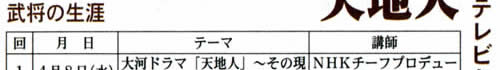 武将の生涯
天地人
テレビ
回 月 日 テーマ 講師
1 4月8日(水) 大河ドラマ「天地人」～その現 NHKチーフプロデュー